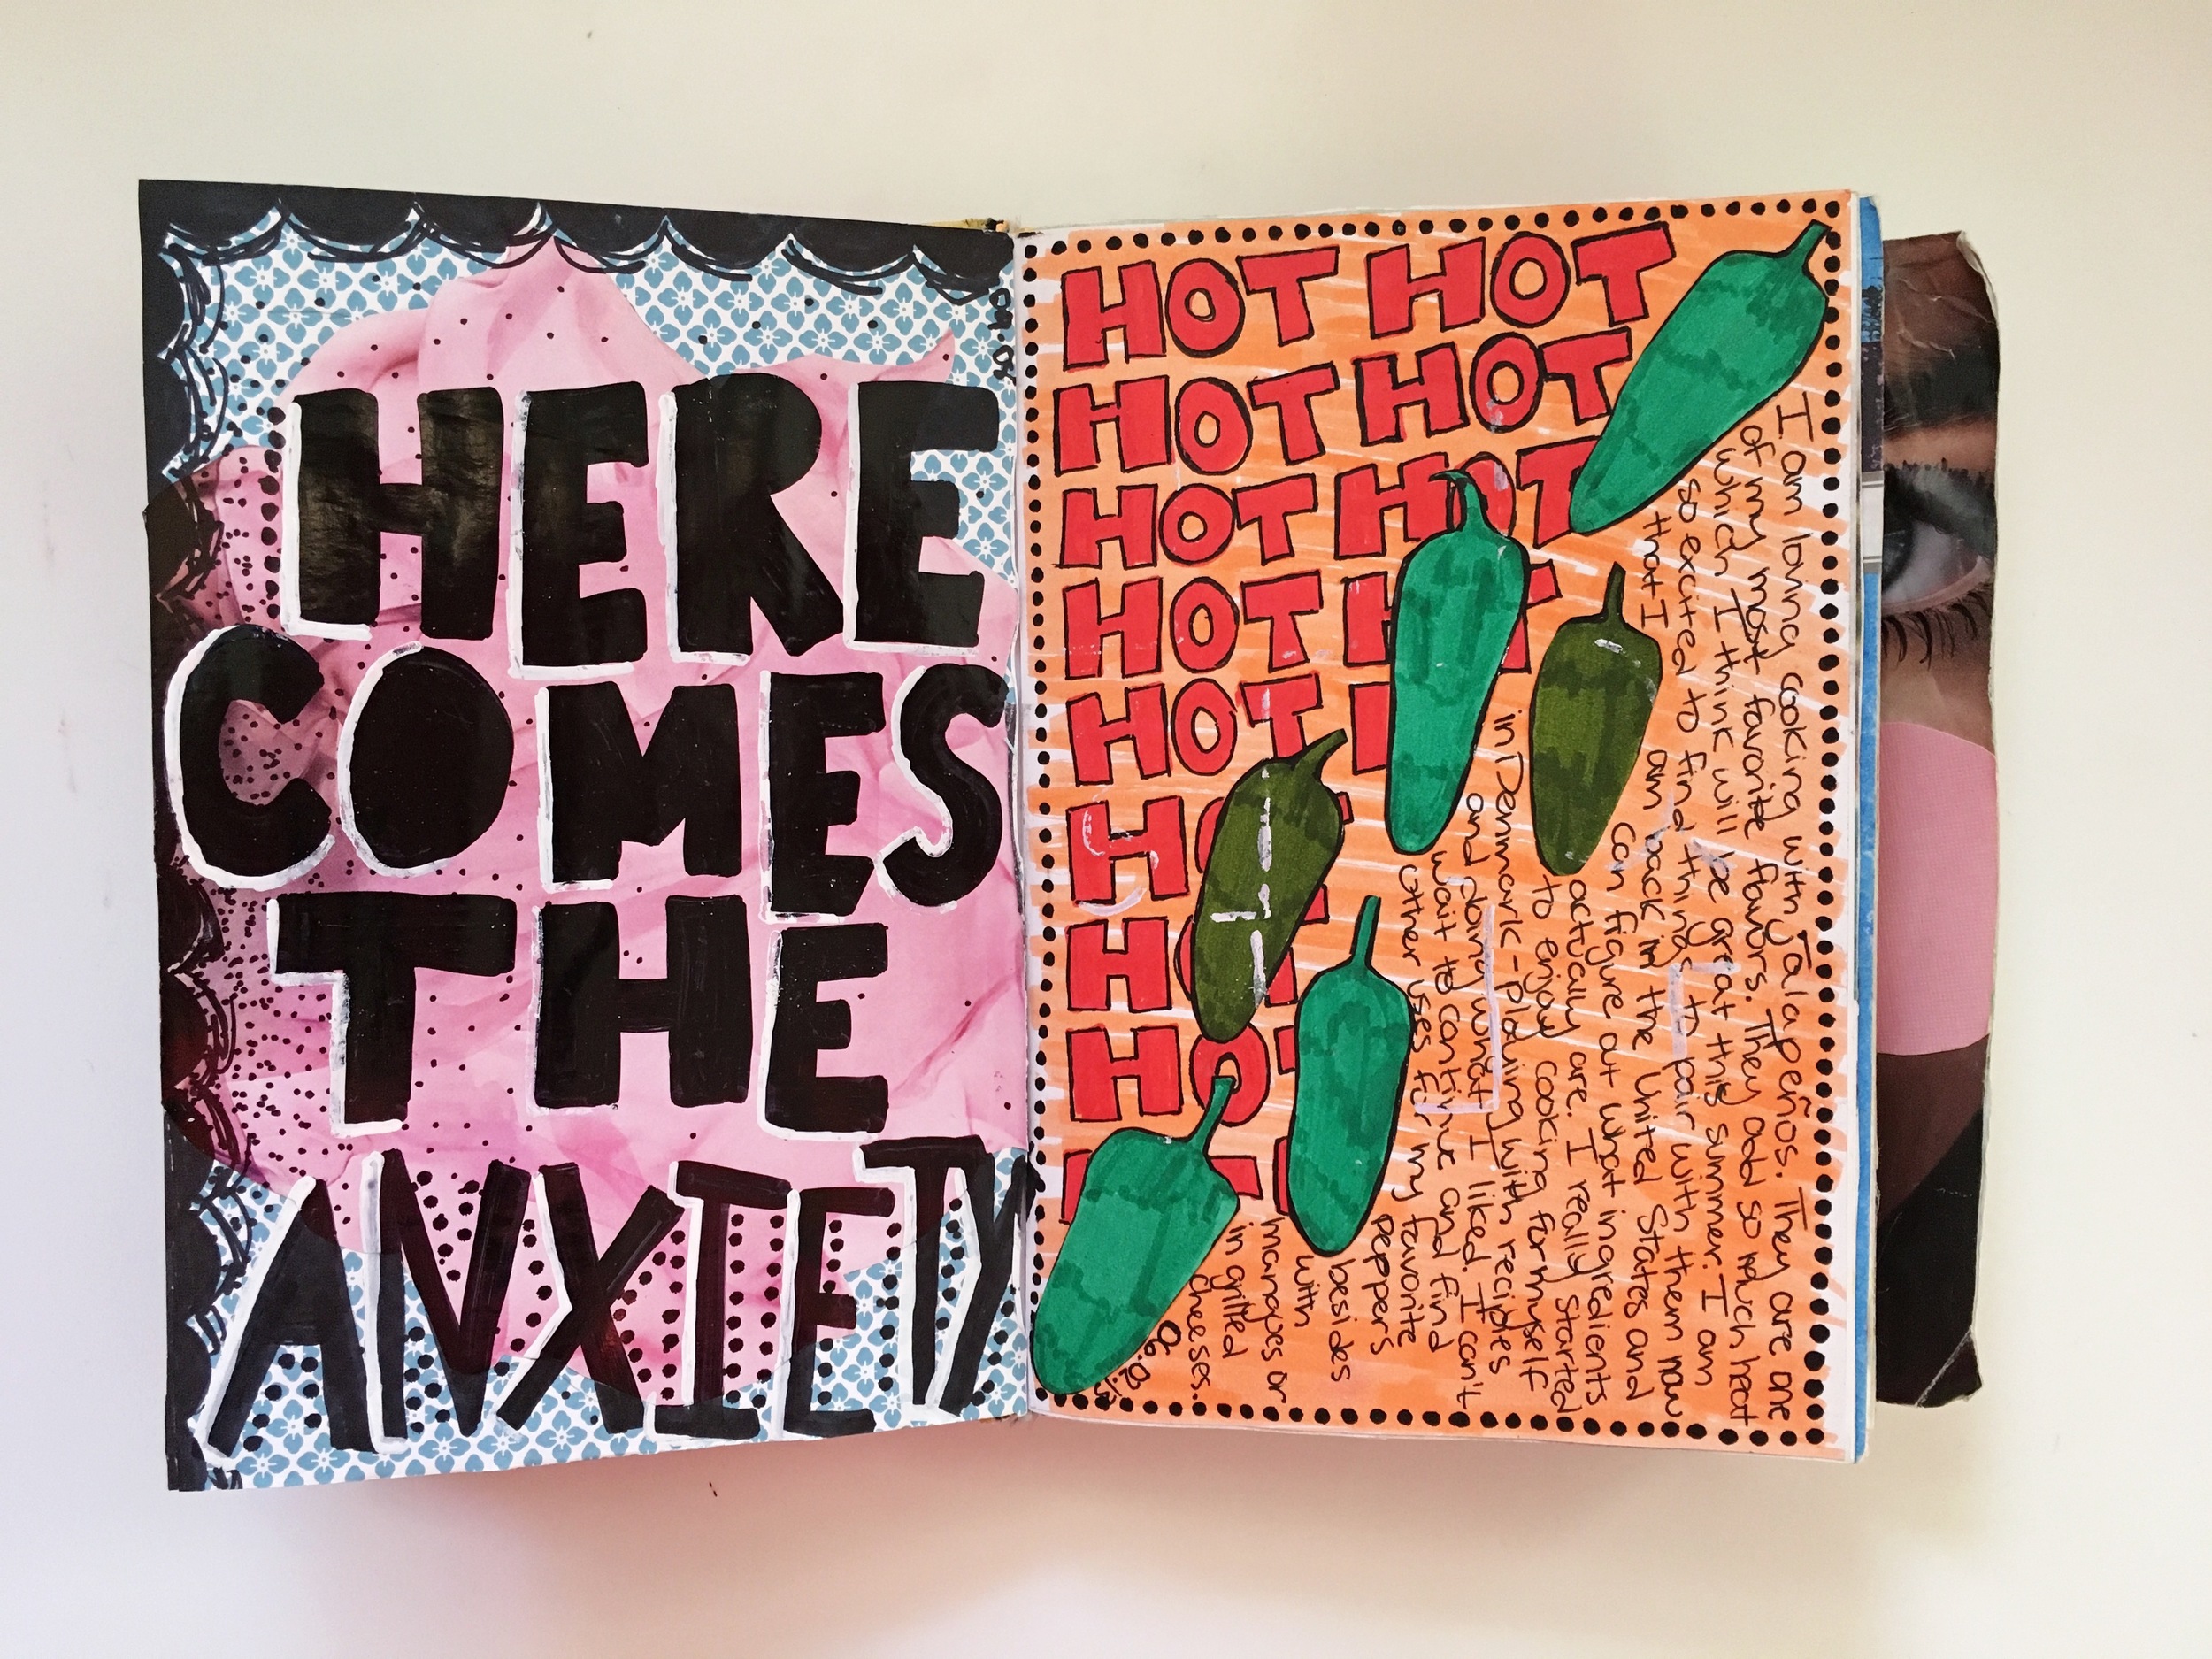 HERE
COMES
THE
ANXIETY
HOT HOT
HOT HOT
HOT HOT
HOT H
HOT
H
H
HO
I am loving cooking with Jalapeños. They are one
of my most favorite flavors. They add so much heat
which I think will be great this summer. I am
so excited to find things to pair with them now
that I am back in the United States and
can figure out what ingredients
actually are. I really started
to enjoy cooking for myself
in Denmark - playing with recipies
and doing what I liked. I can't
wait to continue and find
other uses for my favorite
peppers
besides
with
in grilled
cheeses.